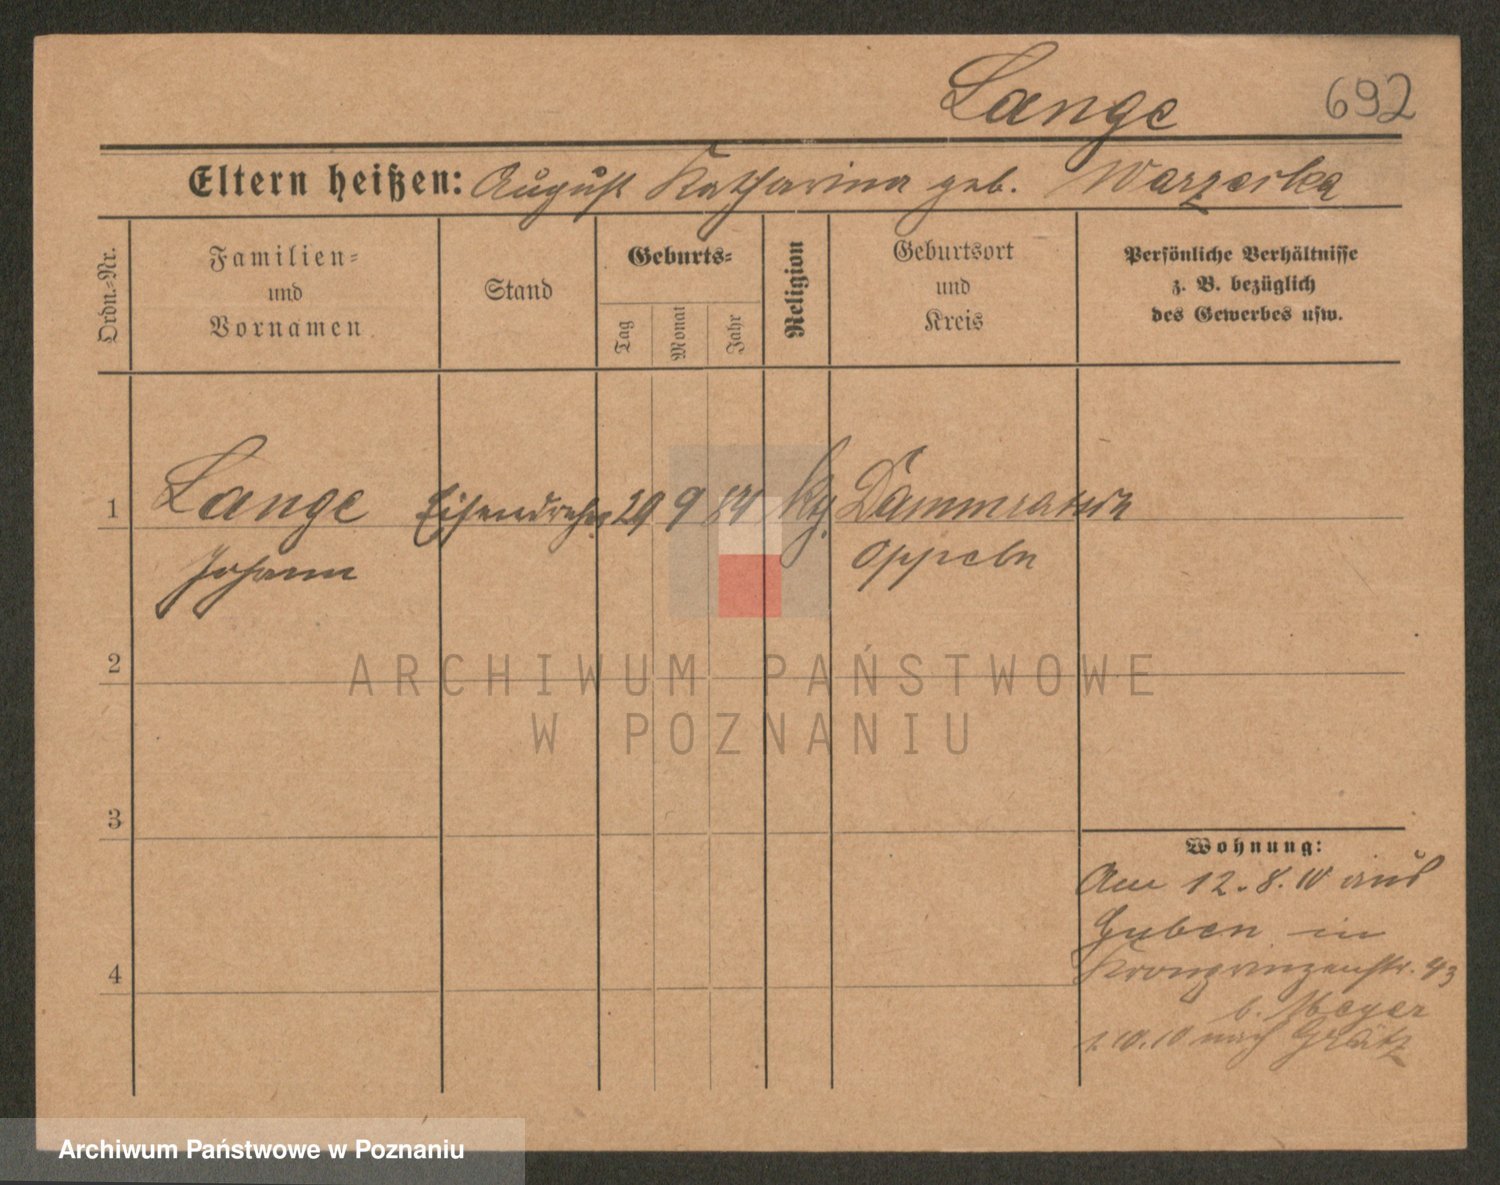 Lange 692
Eltern heißen: August Katharina geb. Warzecka
Ordn.=Nr.
Familien=
und
Vornamen
Stand
Geburts=
Tag
Monat
Jahr
Religion
Geburtsort
und
Kreis
Persönliche Verhältnisse
z. B. bezüglich
des Gewerbes usw.
1 Lange Eisendreher 29 9 84 kg. Dammratsch
Johann Oppeln
2
3
4
Wohnung:
Am 12.8.10 aus
Guben in
Kronprinzenstr. 43
b. Meyer
1.10.10 nach Grätz
ARCHIWUM PAŃSTWOWE
W POZNANIU
Archiwum Państwowe w Poznaniu